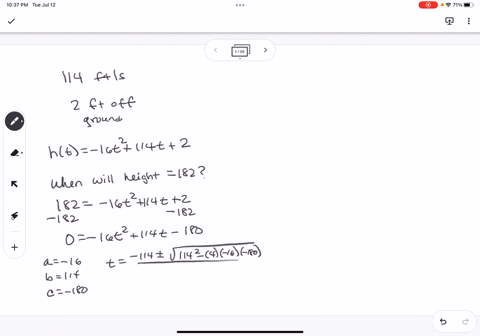 10:37 PM Tue Jul 12
71%
1 / 20
114 ft/s
2 ft off
ground
h(t) = -16t² + 114t + 2
When will height = 182?
182 = -16t² + 114t + 2
-182 -182
0 = -16t² + 114t - 180
a = -16
b = 114
c = -180
t = -114 ± √114² - (4)(-16)(-180)